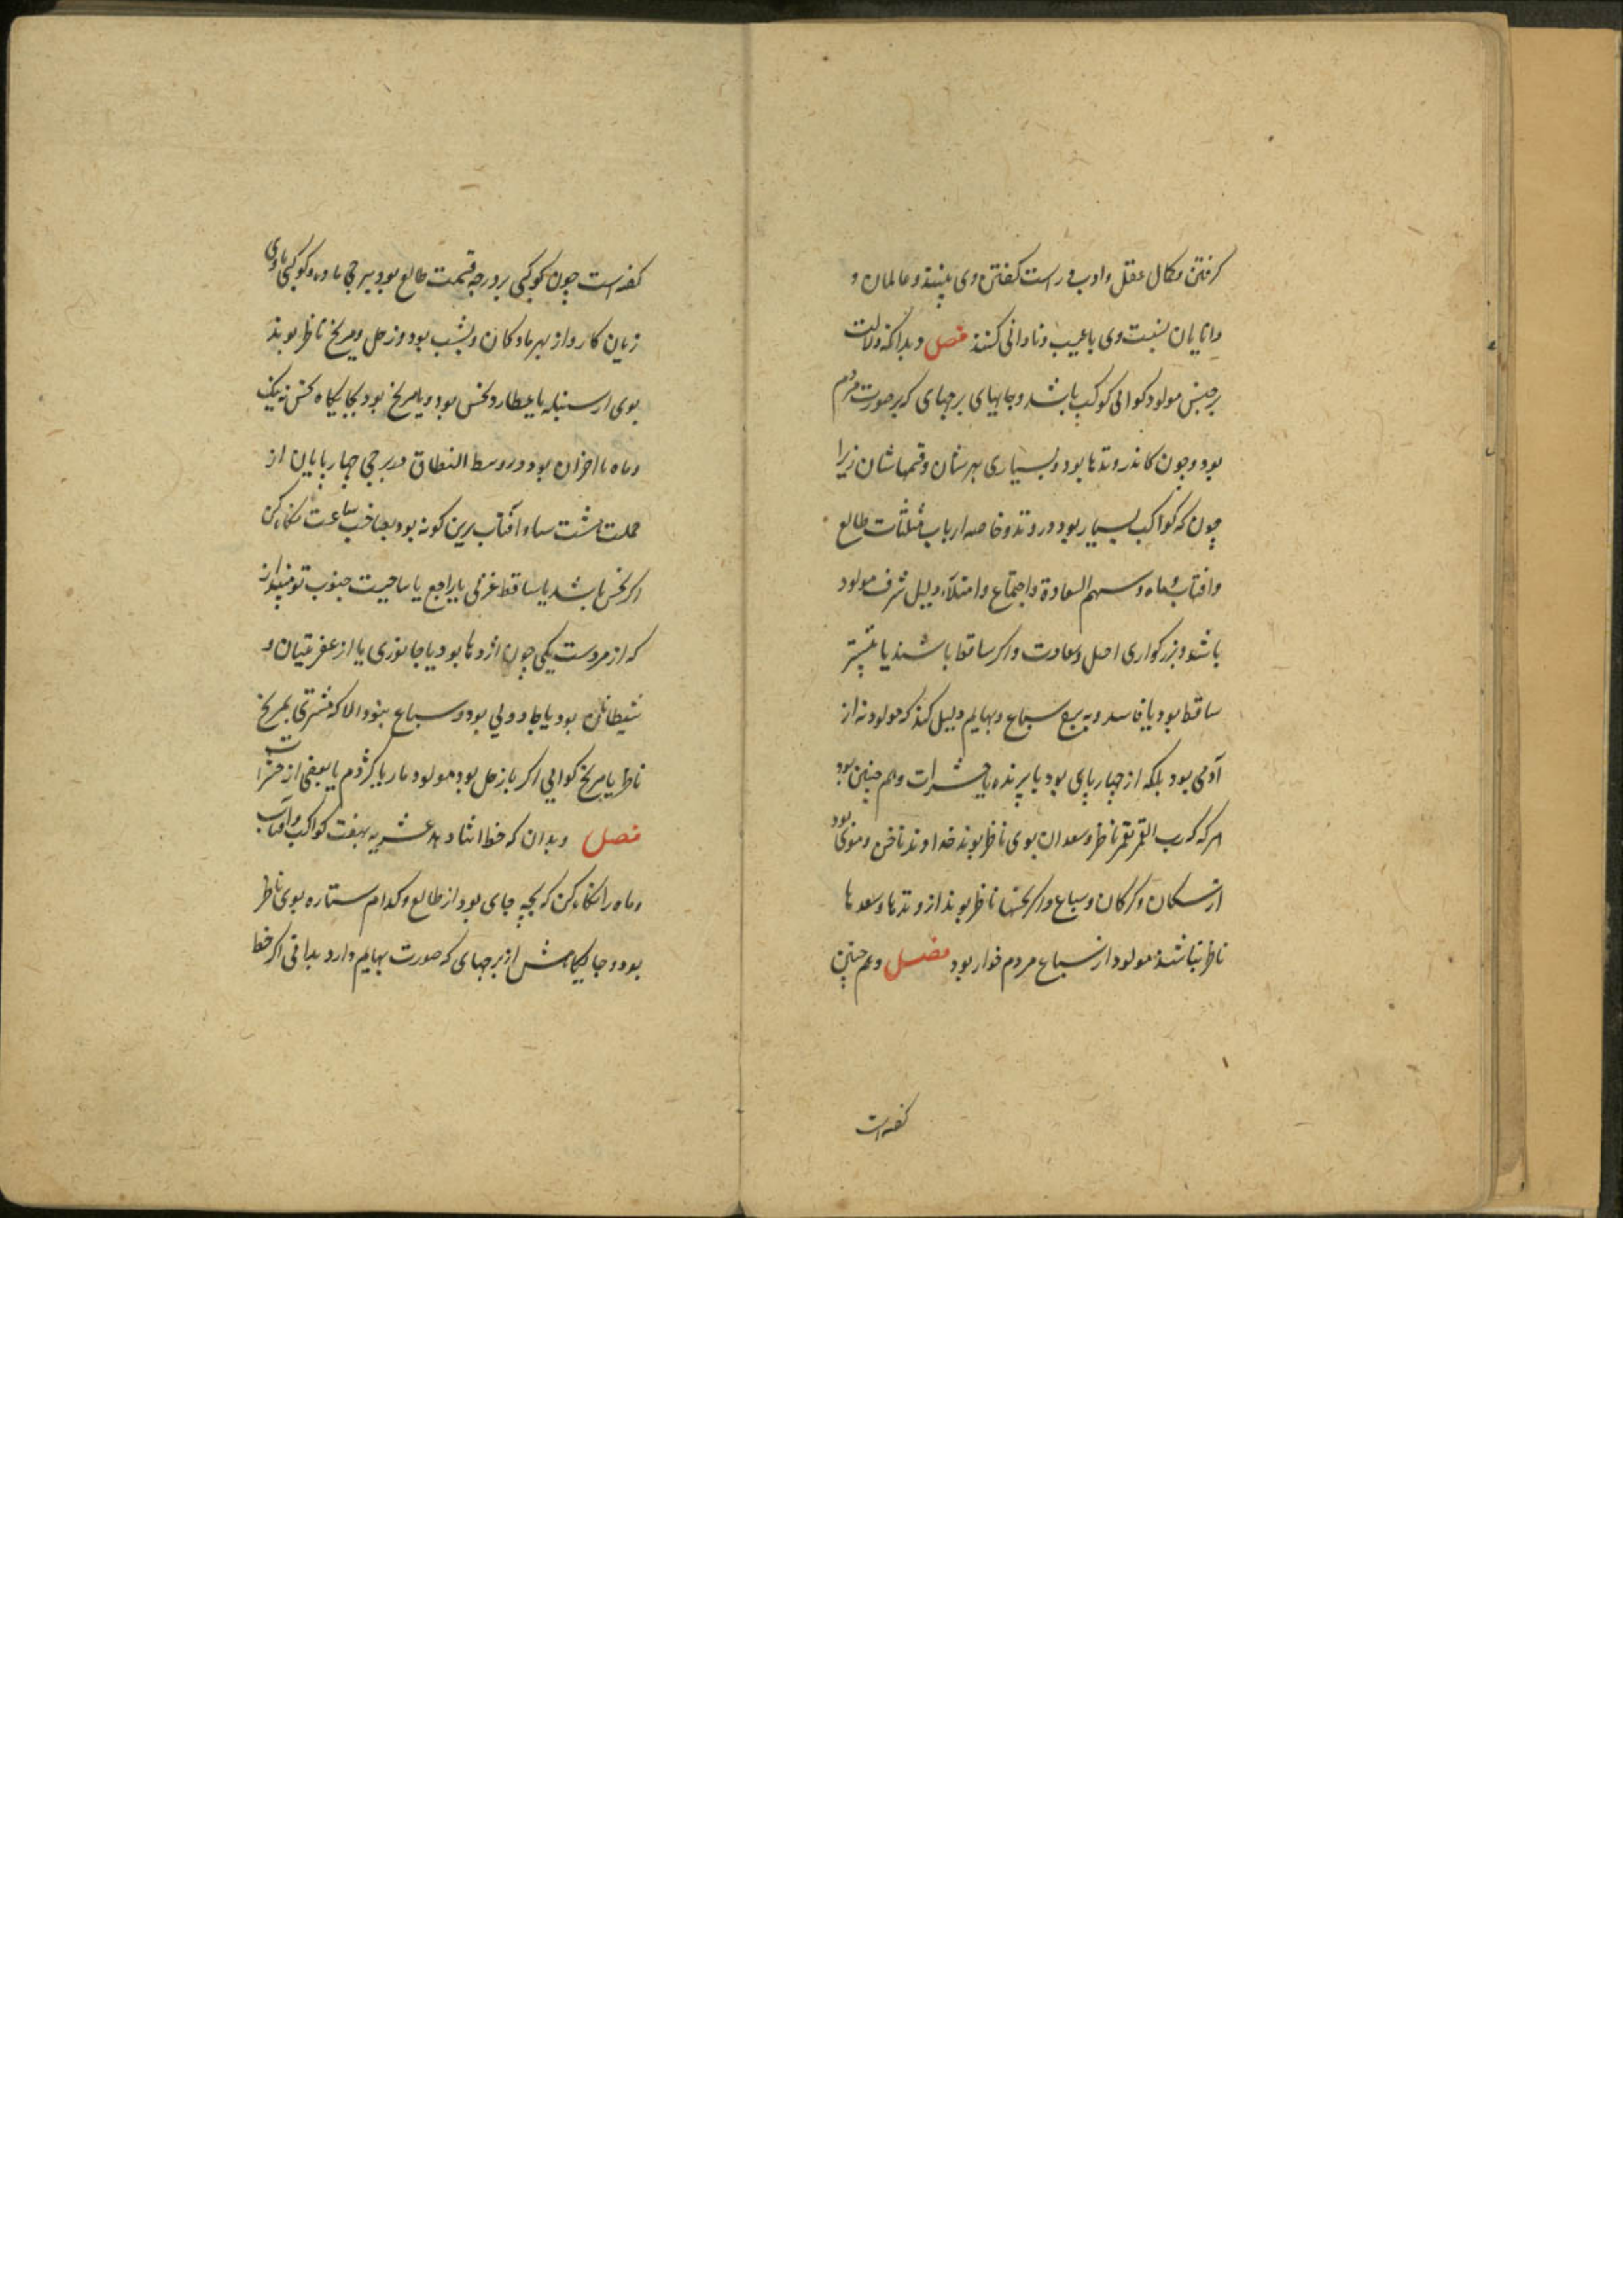 گرفتن و کمال عقل و ادب و راست گفتن وی بینند و عالمان و
دانایان بنسبت وی با عیب و نادانی کنند فصل و بدانکه دلالت
بر جنس مولود گواهی کوکب باشد و جایهای برجهای که بر صورت مردم
بود و چون کاندر وتدها بود و بسیاری بهرشان و قسمهاشان زیرا
چون که کواکب بسیار بود در وتد و خاصه ارباب مثلثات طالع
و افتاب و ماه و سهم السعادة و اجتماع و امتلاء دلیل شرف مولود
باشد و بزرگواری اصل و سعادت و اگر ساقط باشند یا بیشتر
ساقط بود یا فاسد و به برج سباع و بهایم دلیل کند که مولود نه از
آدمی بود بلکه از چهارپای بود یا پرنده یا حشرات و هم چنین بود
هرکه که رب القمر بقمر ناظر و سعدان بوی ناظر بوند خداوند ناخن و موی بود
از سکان و کرکان و سباع و اگر نحسها ناظر بوند از وتدها و سعدها
ناظر نباشند مولود از سباع مردم خوار بود فصل و هم چنین
گفته است
گفته است چون کوکبی بر درجه قسمت طالع بود ببرجی ماده و کوکبی مادی
زیان کار و از بهر مادکان و بشب بود و زحل و مریخ ناظر بوند
بوی از سنبله یا عطارد نحس بود و یا مریخ بود بجایگاه نحس نه نیک
و ماه با اخزان بود و در وسط النطاق در برجی چهارپایان از
اگر نحس باشد یا ساقط غربی یا راجع یا ساحیت جنوب تو مپندار
که از مردست یکی چون اژدها بود یا جانوری یا از عفریتیان و
شیطانان بود یا جادویی بود و سباع بود والا که مشتری بمریخ
ناظر یا مریخ گواهی اگر با زحل بود مولود مار یا کژدم یا بعضی از حشرات
فصل و بدان که خط اثنا عشریه بهفت کواکب و آفتاب
و ماه را نگاه کن که بچه جای بود از طالع و کدام ستاره بوی ناظر
بود و جایگاهش از برجهای که صورت بهایم دارد بدانی اگر خط